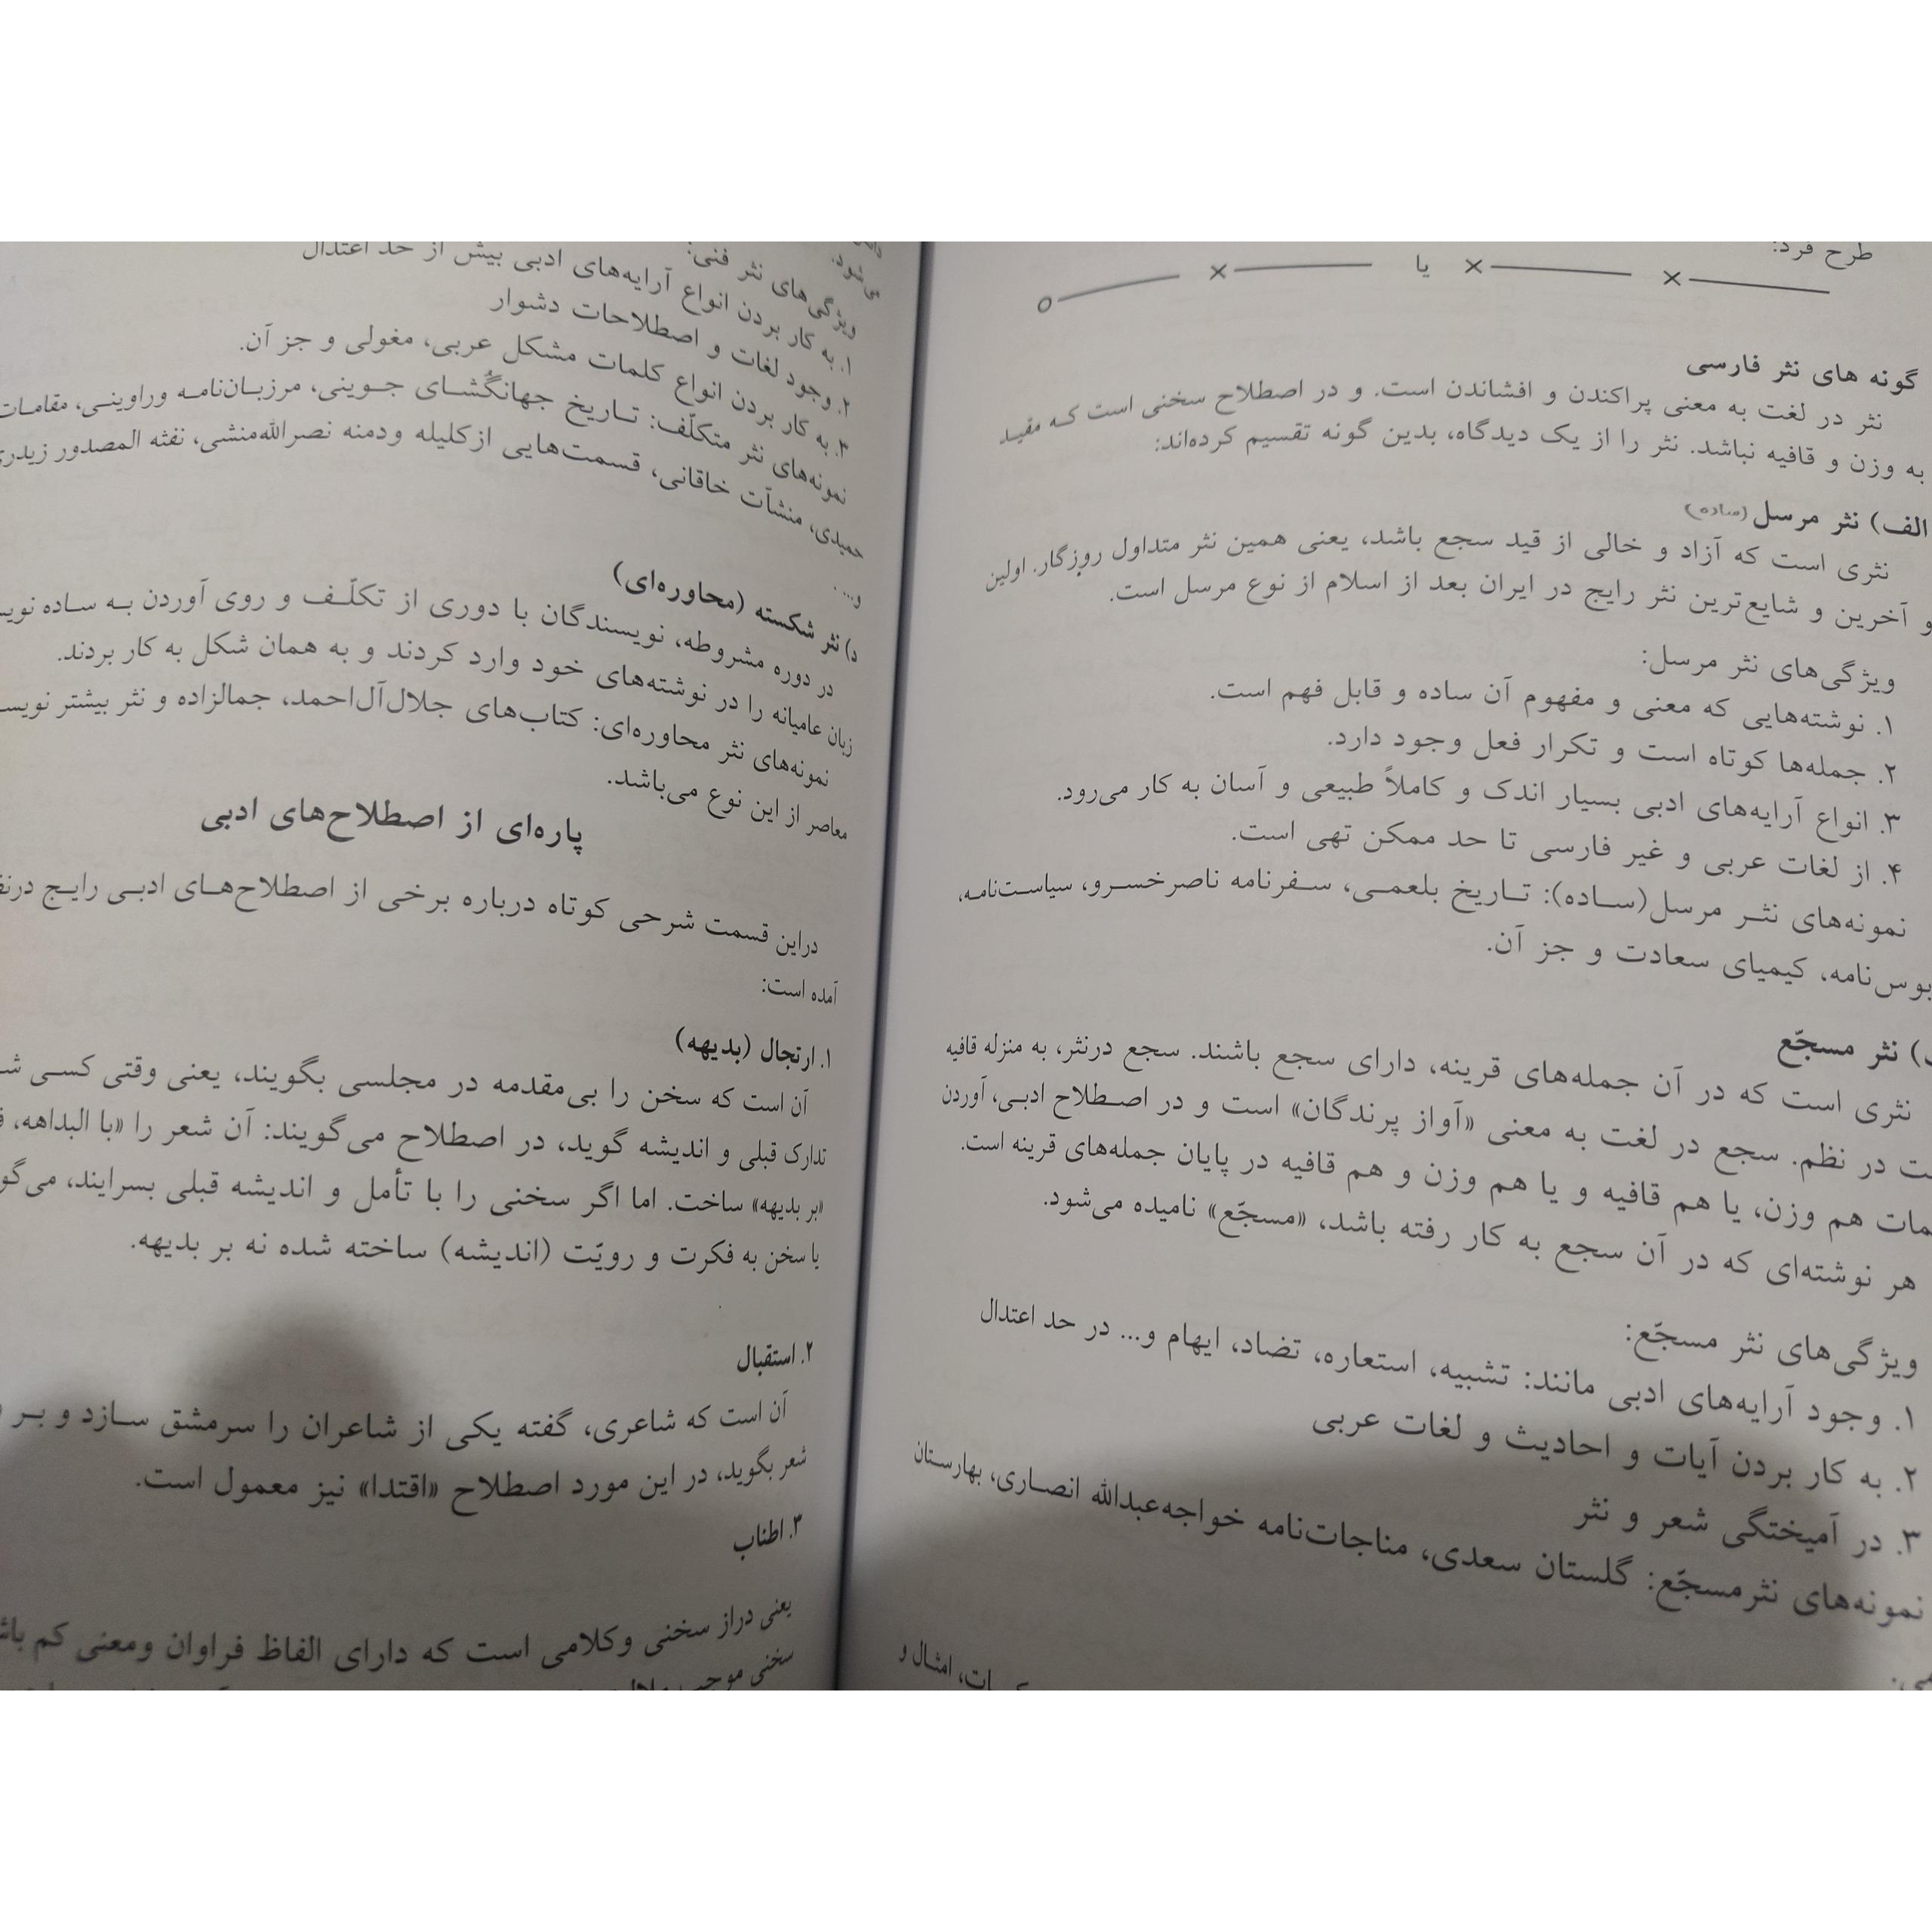 طرح فرد:
یا
گونه های نثر فارسی
نثر در لغت به معنی پراکندن و افشاندن است. و در اصطلاح سخنی است که مقید
به وزن و قافیه نباشد. نثر را از یک دیدگاه، بدین گونه تقسیم کرده‌اند:
الف) نثر مرسل (ساده)
نثری است که آزاد و خالی از قید سجع باشد، یعنی همین نثر متداول روزگار. اولین
و آخرین و شایع‌ترین نثر رایج در ایران بعد از اسلام از نوع مرسل است.
ویژگی‌های نثر مرسل:
۱. نوشته‌هایی که معنی و مفهوم آن ساده و قابل فهم است.
۲. جمله‌ها کوتاه است و تکرار فعل وجود دارد.
۳. انواع آرایه‌های ادبی بسیار اندک و کاملاً طبیعی و آسان به کار می‌رود.
۴. از لغات عربی و غیر فارسی تا حد ممکن تهی است.
نمونه‌های نثر مرسل(ساده): تاریخ بلعمی، سفرنامه ناصرخسرو، سیاست‌نامه،
بوس‌نامه، کیمیای سعادت و جز آن.
) نثر مسجّع
نثری است که در آن جمله‌های قرینه، دارای سجع باشند. سجع درنثر، به منزله قافیه
ت در نظم. سجع در لغت به معنی «آواز پرندگان» است و در اصطلاح ادبی، آوردن
مات هم وزن، یا هم قافیه و یا هم وزن و هم قافیه در پایان جمله‌های قرینه است.
هر نوشته‌ای که در آن سجع به کار رفته باشد، «مسجّع» نامیده می‌شود.
ویژگی‌های نثر مسجّع:
۱. وجود آرایه‌های ادبی مانند: تشبیه، استعاره، تضاد، ایهام و... در حد اعتدال
۲. به کار بردن آیات و احادیث و لغات عربی
۳. در آمیختگی شعر و نثر
نمونه‌های نثرمسجّع: گلستان سعدی، مناجات‌نامه خواجه‌عبدالله انصاری، بهارستان
امثال و
می‌شود.
ویژگی‌های نثر فنی:
۱. به کار بردن انواع آرایه‌های ادبی بیش از حد اعتدال
۲. وجود لغات و اصطلاحات دشوار
۳. به کار بردن انواع کلمات مشکل عربی، مغولی و جز آن.
نمونه‌های نثر متکلّف: تاریخ جهانگُشای جوینی، مرزبان‌نامه وراوینی، مقامات
حمیدی، منشآت خاقانی، قسمت‌هایی ازکلیله ودمنه نصرالله‌منشی، نفثه المصدور زیدری
و... .
د) نثر شکسته (محاوره‌ای)
در دوره مشروطه، نویسندگان با دوری از تکلّف و روی آوردن به ساده نویس
زبان عامیانه را در نوشته‌های خود وارد کردند و به همان شکل به کار بردند.
نمونه‌های نثر محاوره‌ای: کتاب‌های جلال‌آل‌احمد، جمالزاده و نثر بیشتر نویس
معاصر از این نوع می‌باشد.
پاره‌ای از اصطلاح‌های ادبی
دراین قسمت شرحی کوتاه درباره برخی از اصطلاح‌های ادبی رایج درنق
آمده است:
۱. ارتجال (بدیهه)
آن است که سخن را بی‌مقدمه در مجلسی بگویند، یعنی وقتی کسی ش
تدارک قبلی و اندیشه گوید، در اصطلاح می‌گویند: آن شعر را «با البداهه،
«بر بدیهه» ساخت. اما اگر سخنی را با تأمل و اندیشه قبلی بسرایند، می‌گو
یا سخن به فکرت و رویّت (اندیشه) ساخته شده نه بر بدیهه.
۲. استقبال
آن است که شاعری، گفته یکی از شاعران را سرمشق سازد و بر
شعر بگوید، در این مورد اصطلاح «اقتدا» نیز معمول است.
۳. اطناب
یعنی دراز سخنی وکلامی است که دارای الفاظ فراوان ومعنی کم باش
سخنی موجب